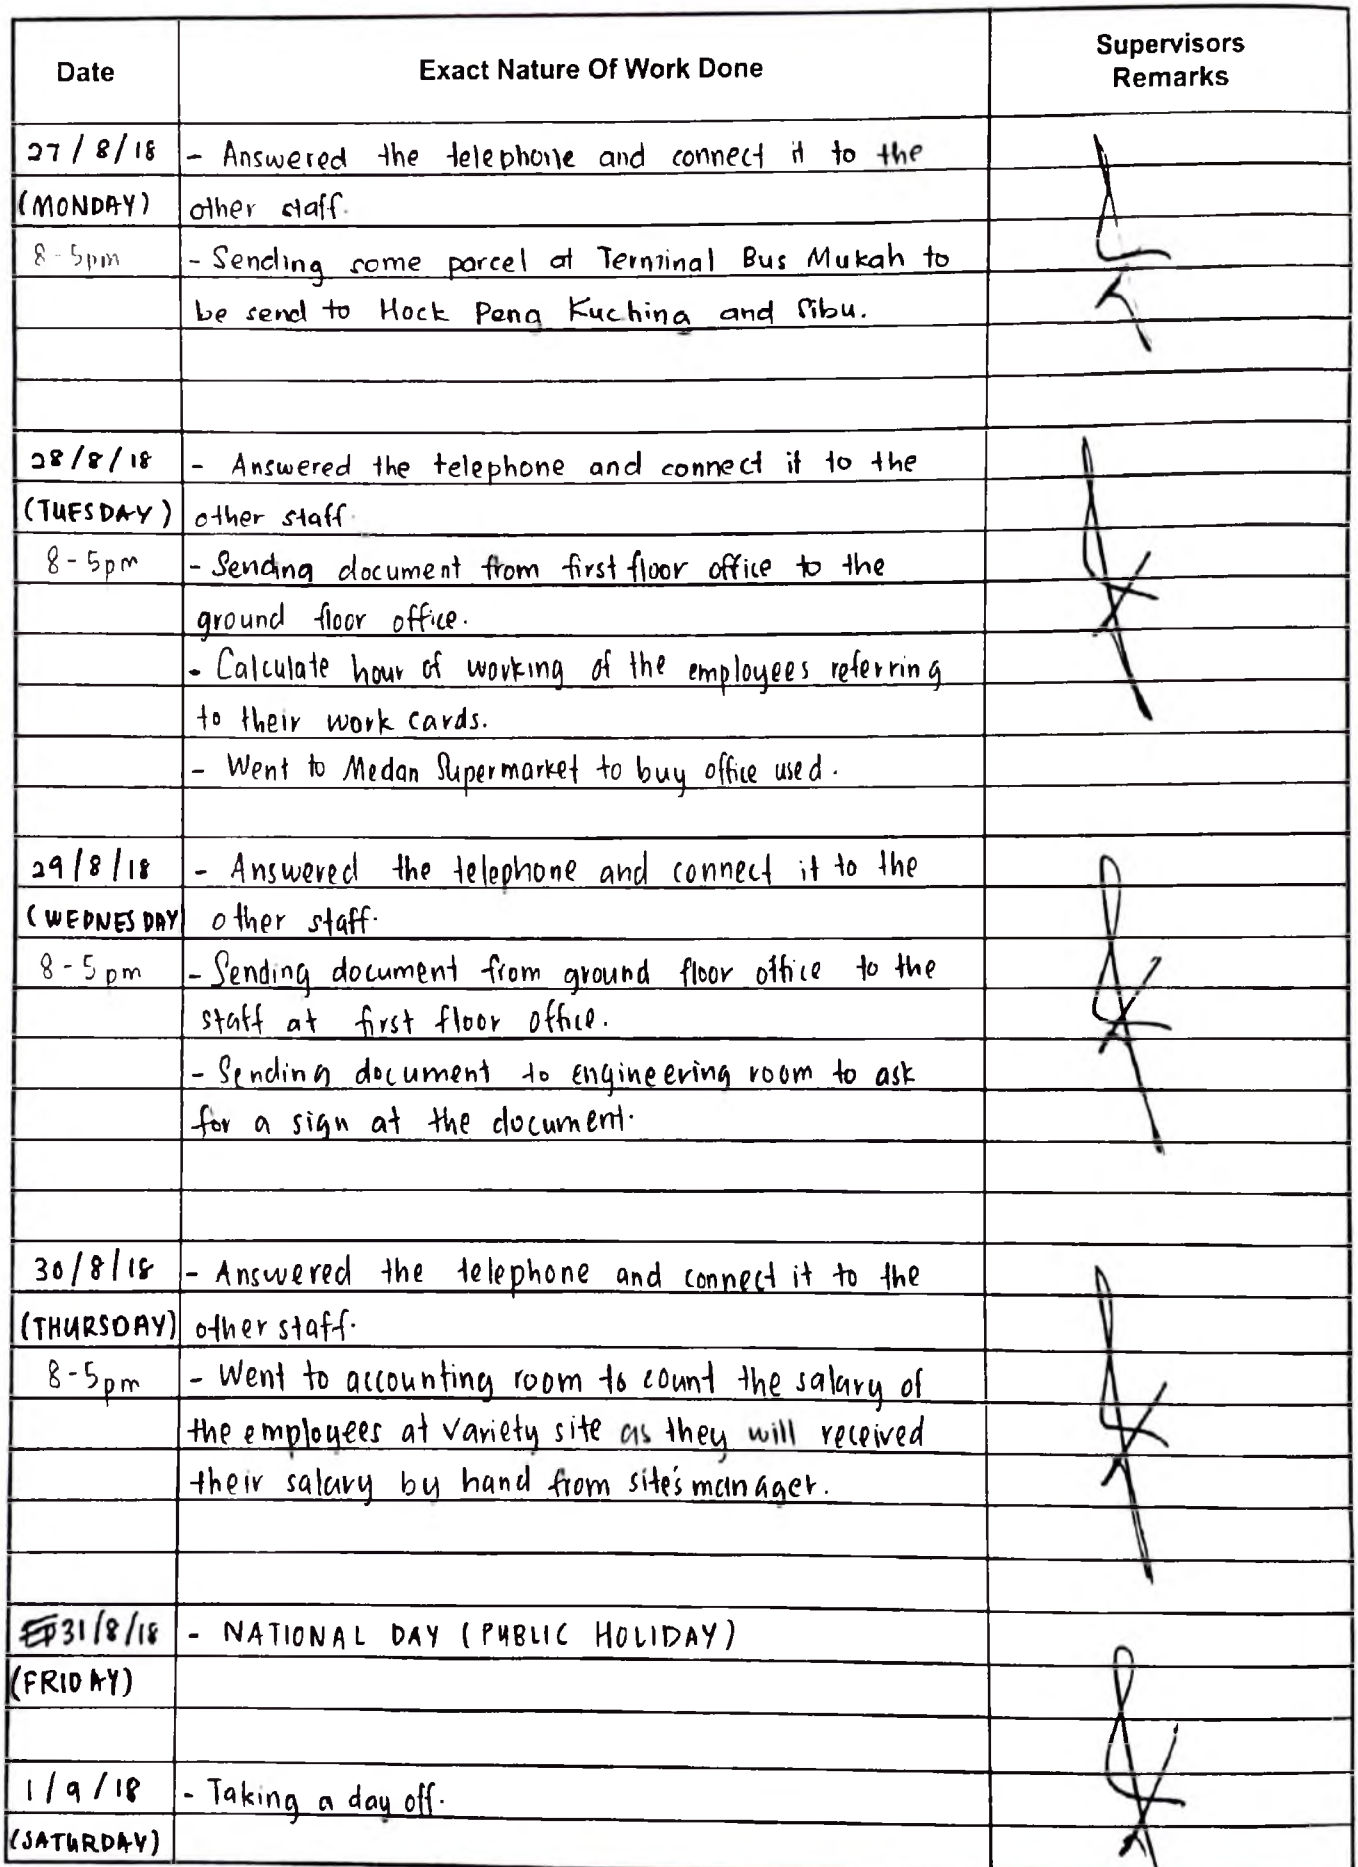 Date Exact Nature Of Work Done Supervisors
Remarks
27/8/18 - Answered the telephone and connect it to the
(MONDAY) other staff.
8-5pm - Sending some parcel at Terminal Bus Mukah to
be send to Hock Peng Kuching and Sibu.
28/8/18 - Answered the telephone and connect it to the
(TUESDAY) other staff.
8-5pm - Sending document from first floor office to the
ground floor office.
- Calculate hour of working of the employees referring
to their work cards.
- Went to Medan Supermarket to buy office used.
29/8/18 - Answered the telephone and connect it to the
(WEDNESDAY) other staff.
8-5pm - Sending document from ground floor office to the
staff at first floor office.
- Sending document to engineering room to ask
for a sign at the document.
30/8/18 - Answered the telephone and connect it to the
(THURSDAY) other staff.
8-5pm - Went to accounting room to count the salary of
the employees at variety site as they will received
their salary by hand from site's manager.
31/8/18 - NATIONAL DAY (PUBLIC HOLIDAY)
(FRIDAY)
1/9/18 - Taking a day off.
(SATURDAY)